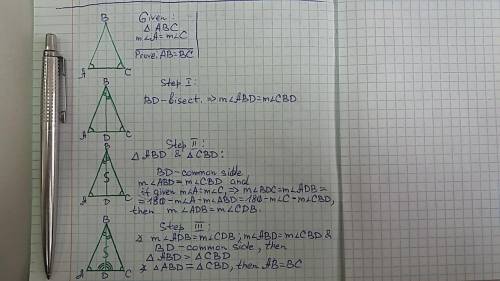 B
Given:
△ABC
m∠A=m∠C
Prove: AB=BC
A C
Step I:
B
BD-bisect. ⇒ m∠ABD=m∠CBD
A D C
Step II:
B
△ABD & △CBD:
BD-common side,
m∠ABD=m∠CBD and
if given m∠A=m∠C, ⇒ m∠BDC=m∠ADB=
=180-m∠A-m∠ABD=180-m∠C-m∠CBD,
then m∠ADB=m∠CDB.
S
A D C
Step III
B
m∠ADB=m∠CDB; m∠ABD=m∠CBD &
BD-common side, then
△ABD > △CBD
△ABD = △CBD, then AB=BC
S
A D C